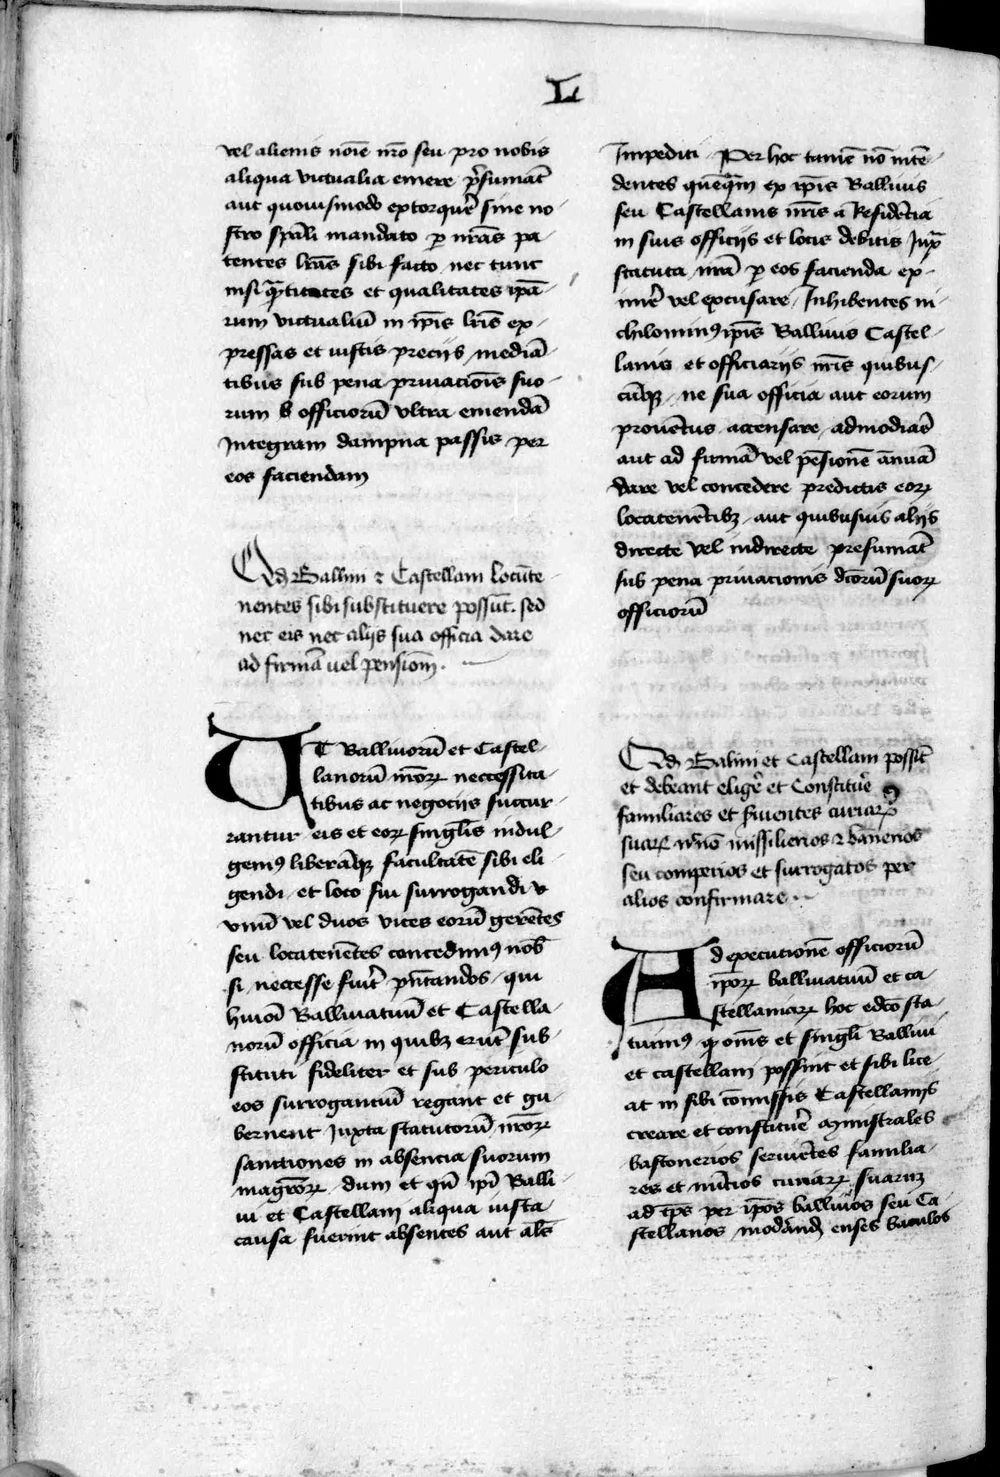 L
vel alienis noīe nr̄o seu pro nobis
aliqua victualia emere p̄sumāt
aut quouismodo extorquēr sine no-
stro sp̄ali mandato p nr̄as pa-
tentes lr̄as sibi facto nec tunc
nisi q̄titates et qualitates ip̄a-
rum victualiū in ip̄is lr̄is ex-
pressas et iustis preciis mediā-
tibus sub pena priuacionis suo-
rum officiorū vltra emendā
Integram dampna passis per
eos faciendam
Qd Balliui et Castellani locūte-
nentes sibi substituere possūt. sed
nec eis nec aliis sua officia dare
ad firmā uel pensionē.
UT Balliuorū et Castel-
lanorū nr̄oꝝ necessita-
tibus ac negociis succur-
rantur eis et eoꝝ singl̄is indul-
gemꝰ liberāqꝫ facultatē sibi eli-
gendi et loco sui surrogandi v
vnū vel duos vices eorū gerētes
seu locatenētes concedimꝰ nob̄
si necesse fuīt pn̄tandos qui
hmōi Balliuatuū et Castella-
norū officia in quibꝫ erūt sub-
stituti fideliter et sub periculo
eos surrogantiū regant et gu-
bernent Juxta statutorū nr̄oꝝ
sanctiones in absencia suorum
magr̄oꝝ dum et qn̄ ip̄i Balli-
ui et Castellani aliqua iusta
causa fuerint absentes aut al̄s
Impediti Per hoc tamē nō intē-
dentes quēq̄m ex ip̄is Balliuis
seu Castellanis nr̄is a Residētia
in suis officiis et locis debitis Jux̄
statuta nr̄a p eos facienda ex-
imēr vel excusare Inhibentes ni-
chilominꝰ ip̄is Balliuis Castel-
lanis et officiariis nr̄is quibus-
cūqꝫ ne sua officia aut eorum
prouētus accensare admodiar̄
aut ad firmā vel pēsionē ānuā
dare vel concedere predictis eoꝝ
locatenētibꝫ aut quibusuis aliis
directe vel indirecte presumāt
sub pena priuacionis dc̄orū suoꝝ
officiorū
Qd Baliui et Castellani possīt
et debeant eligēr et Constituēr
familiares et seruientes curiaꝝ
suaꝝ nō missilienos et banenos
seu comperios et surrogatos per
alios confirmare
Ad execucionē officiorū
ip̄oꝝ balliuatuū et ca-
stellaniaꝝ hoc edc̄o sta-
tuimꝰ qd om̄s et singl̄i Balliui
et castellani possint et sibi lice-
at in sibi cōmissis Castellaniis
creare et constituēr ministrales
bastonerios seruiētes familia-
res et nūtios curiaꝝ suarum
ad tp̄s per ip̄os balliuos seu Ca-
stellanos modāndꝫ enses baculos